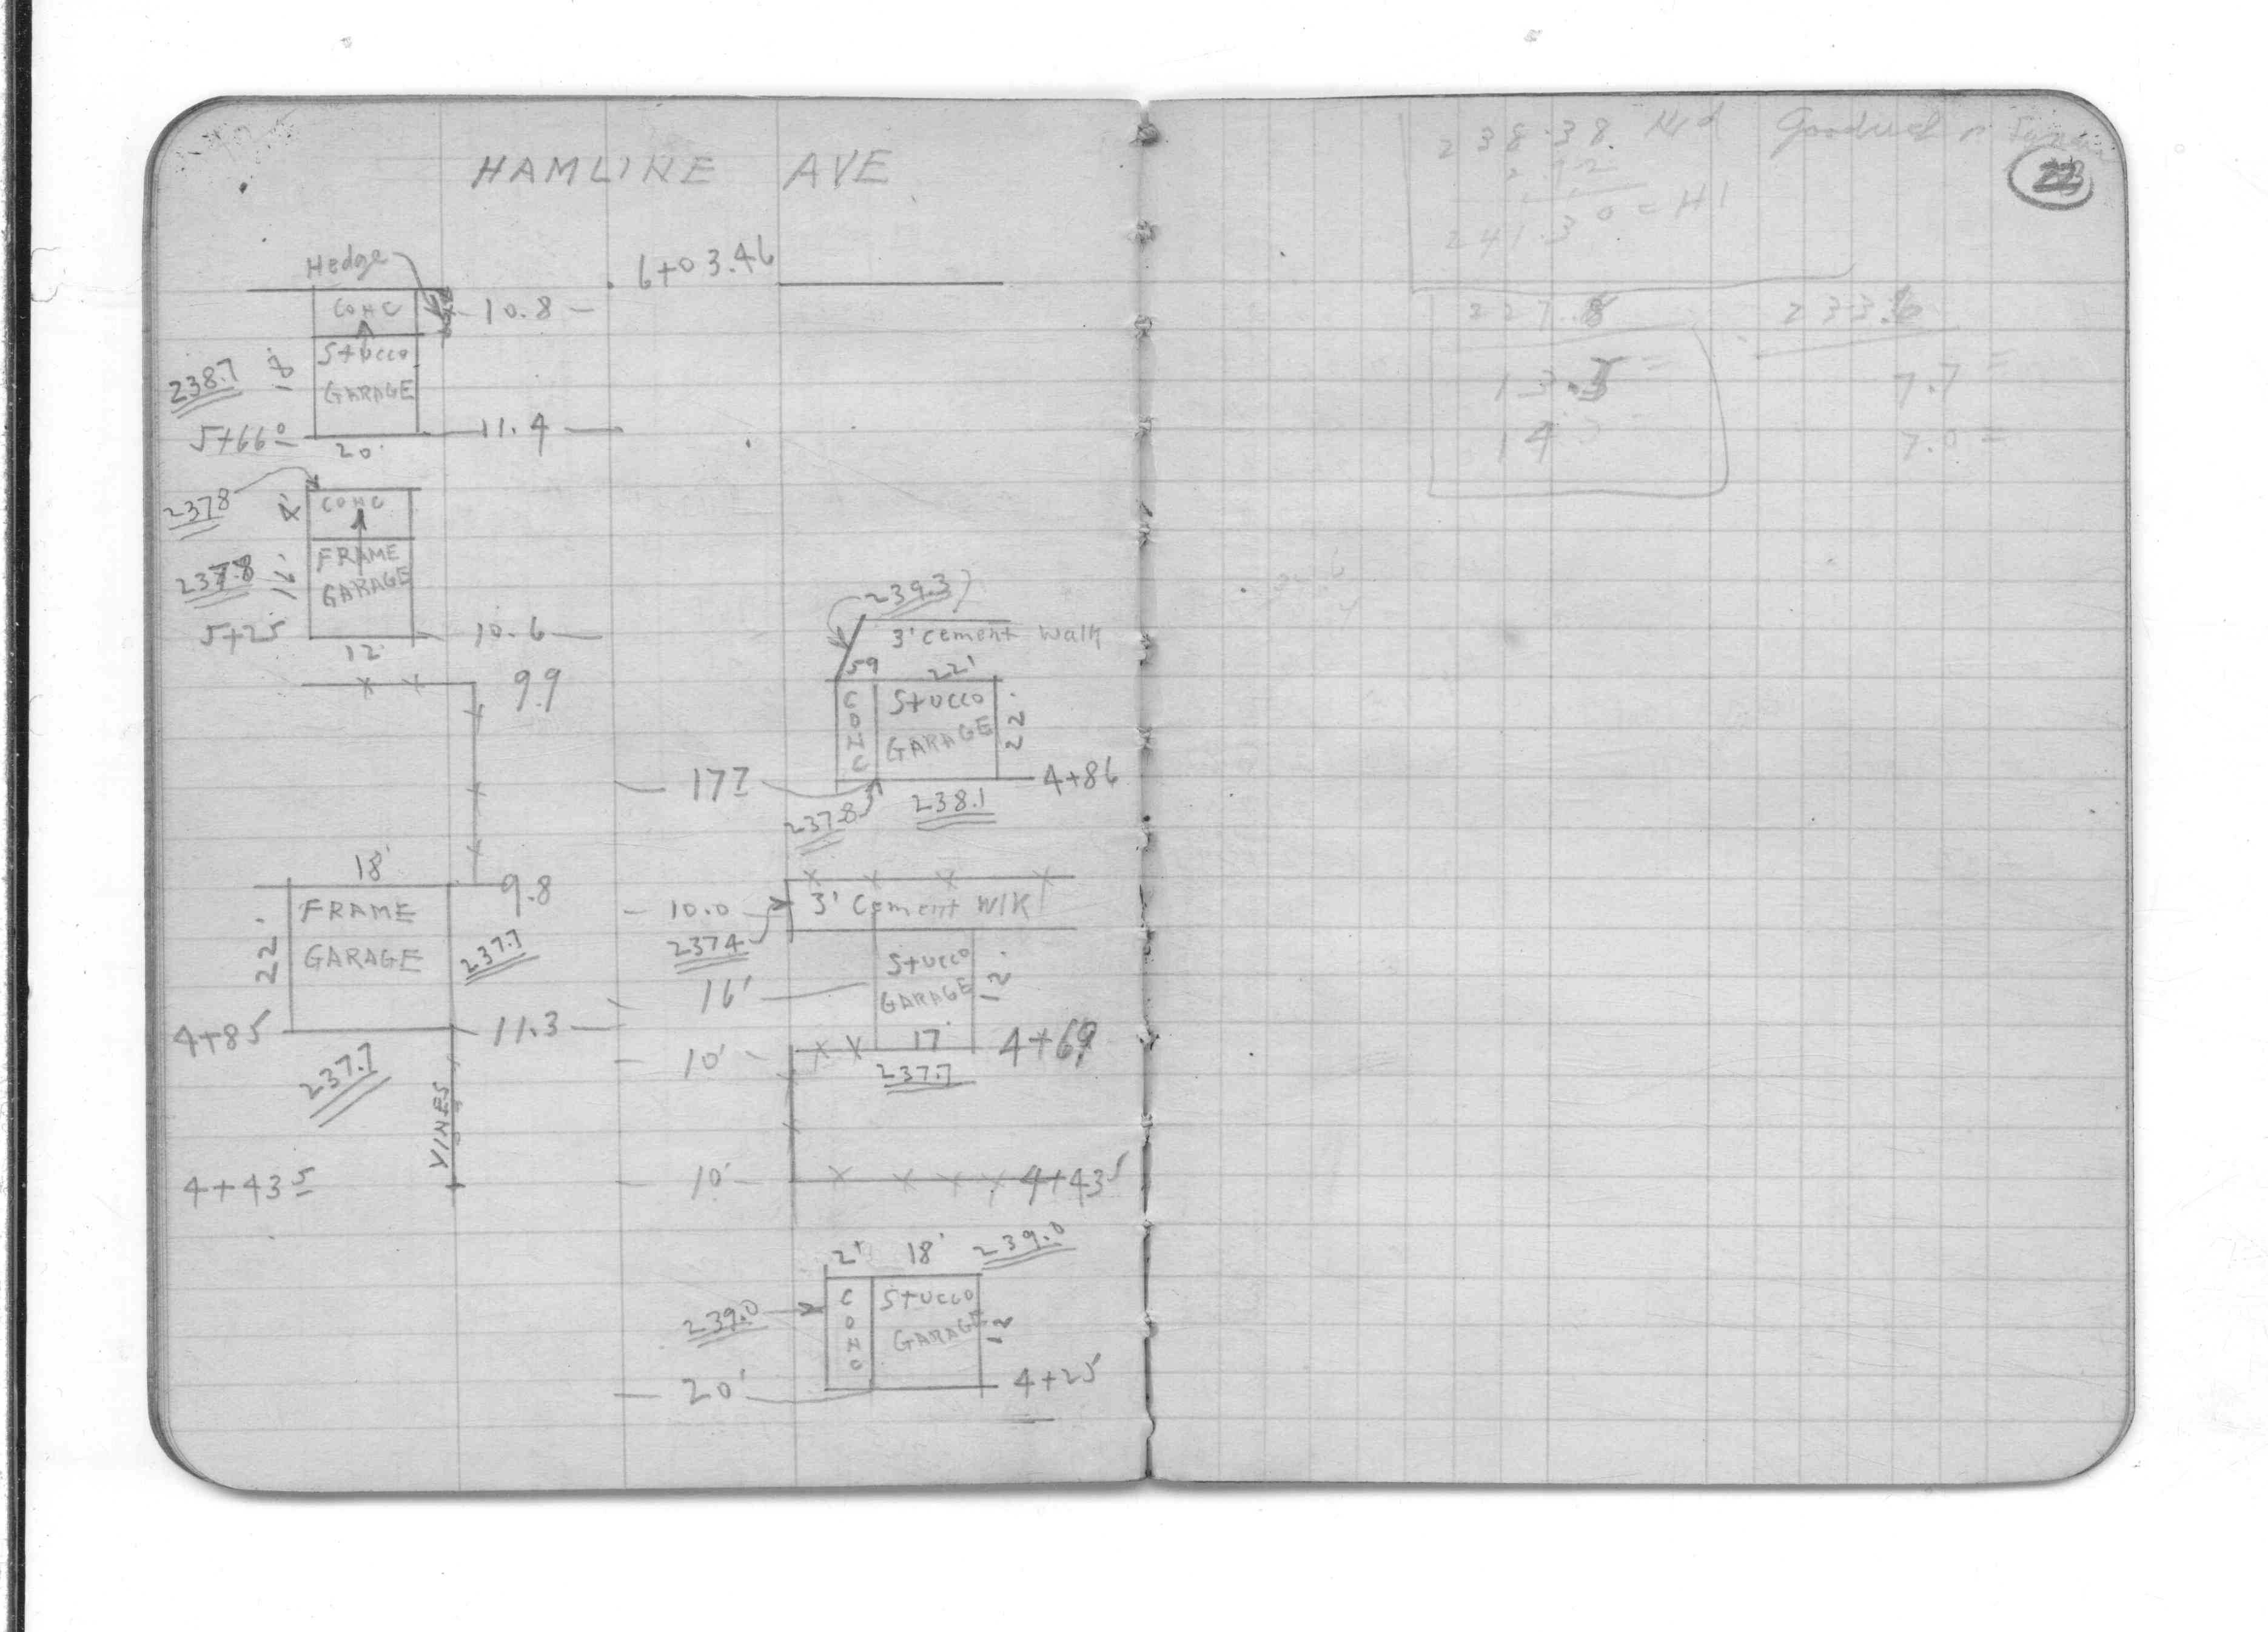 HAMLINE AVE
6+03.46
Hedge
CONC
10.8
Stucco
GARAGE
238.7
18'
5+66⁰
11.4
20'
237.8
4'
CONC
237.8
16'
FRAME
GARAGE
5+25
10.6
12'
9.9
239.3
3' Cement Walk
59
22'
CONC
Stucco
GARAGE
22'
177
4+86
237.8
238.1
18'
9.8
FRAME
GARAGE
22'
237.7
10.0
3' Cement Wlk
237.4
Stucco
GARAGE
12'
16'
4+85
11.3
10'
17'
4+69
237.7
237.7
VINES
4+43⁵
10'
4+43⁵
2'
18'
239.0
239.0
CONC
Stucco
GARAGE
12
20'
4+25
22
238.38
241.30 = HI
227.8
233.6
13.5 =
7.7 =
14
7.0 =